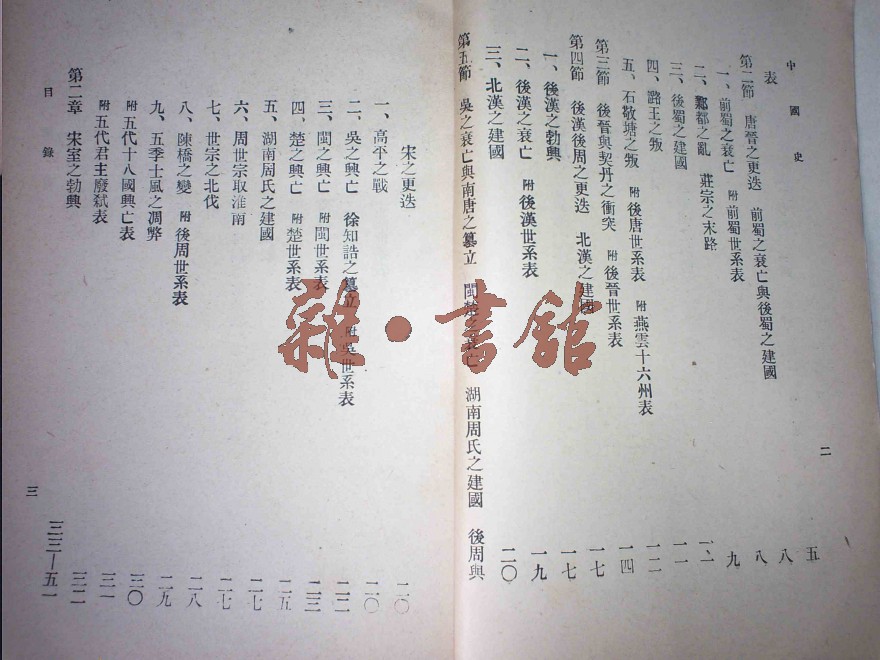 中國史
二
表 五
第二節 唐晉之更迭 前蜀之衰亡與後蜀之建國 八
一、前蜀之衰亡 附 前蜀世系表 八
二、鄴都之亂 莊宗之末路 九
三、後蜀之建國 一一
四、潞王之叛 一一
五、石敬瑭之叛 附 後唐世系表 附 燕雲十六州表 一二
第三節 後晉與契丹之衝突 附 後晉世系表 一四
第四節 後漢後周之更迭 北漢之建國 一七
一、後漢之勃興 一七
二、後漢之衰亡 附 後漢世系表 一九
三、北漢之建國 二〇
第五節 吳之衰亡與南唐之篡立 閩楚之衰亡 湖南周氏之建國 後周與
宋之更迭 二〇
一、高平之戰 二〇
二、吳之興亡 徐知誥之篡立 附 吳世系表 二二
三、閩之興亡 附 閩世系表 二三
四、楚之興亡 附 楚世系表 二五
五、湖南周氏之建國 二七
六、周世宗取淮南 二七
七、世宗之北伐 二八
八、陳橋之變 附 後周世系表 二九
九、五季士風之凋弊 三〇
附 五代十八國興亡表 三一
附 五代君主廢弒表 三二
第二章 宋室之勃興 三三—五一
目錄
三
雜·書館